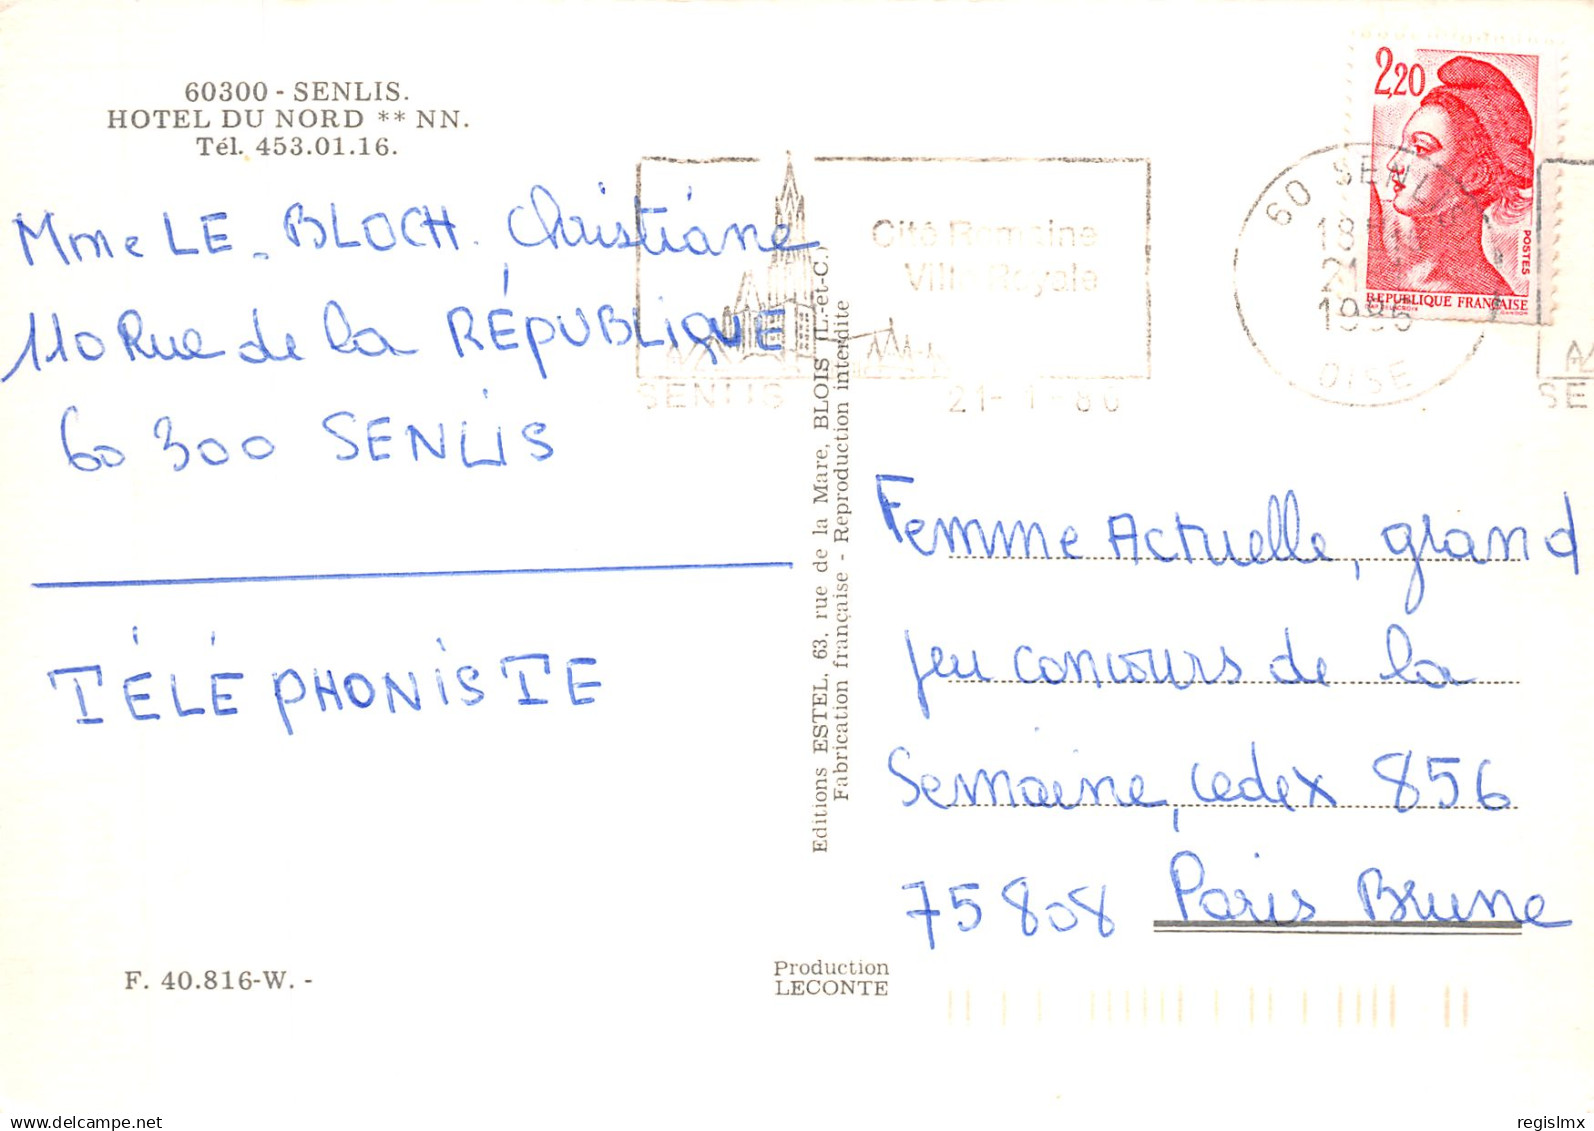 60300 - SENLIS.
HOTEL DU NORD ** NN.
Tél. 453.01.16.
Mme LE_BLOCH. Christiane
110 Rue de la RÉPUBLIQUE
60 300 SENLIS
TÉLÉPHONISTE
F. 40.816-W. -
Editions ESTEL, 63, rue de la Mare, BLOIS (L.-et-C.)
Fabrication française - Reproduction interdite
Production
LECONTE
Cité Romaine
Ville Royale
SENLIS 21-1-86
60 SENLIS
21
1986
OISE
2,20
POSTES
REPUBLIQUE FRANÇAISE
SE
Femme Actuelle, grand
jeu concours de la
Semaine, cedex 856
75808 Paris Brune
delcampe.net
regislmx